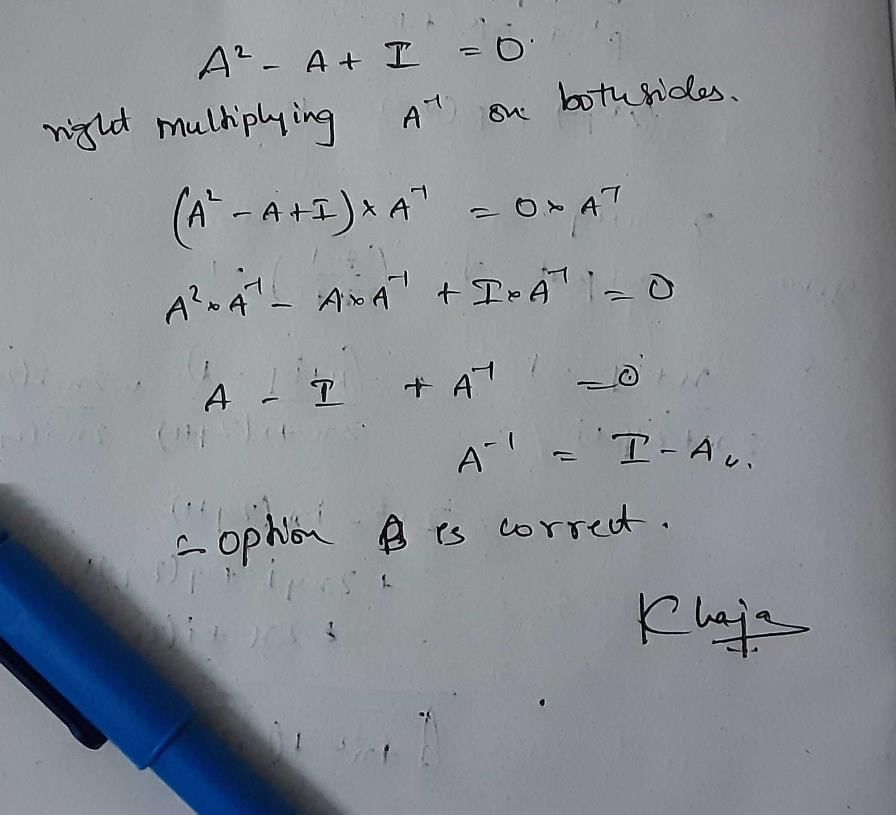 A² - A + I = 0
right multiplying A⁻¹ on both sides.
(A² - A + I) × A⁻¹ = 0 × A⁻¹
A² × A⁻¹ - A × A⁻¹ + I × A⁻¹ = 0
A - I + A⁻¹ = 0
A⁻¹ = I - A
option B is correct.
Khaja